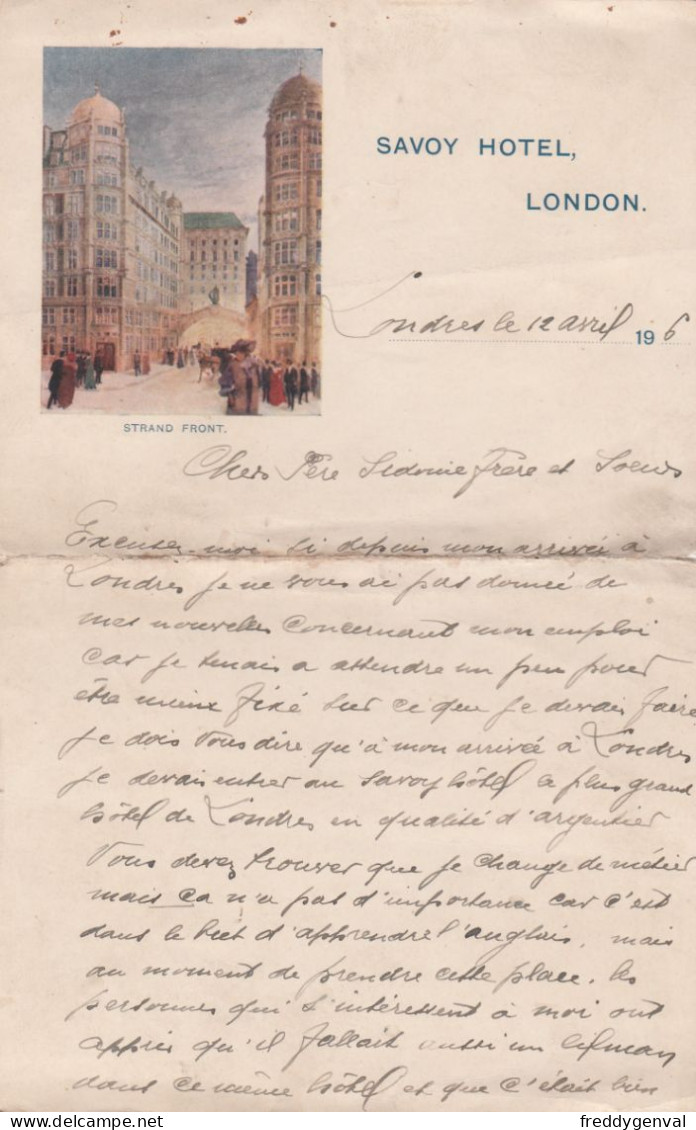 SAVOY HOTEL,
LONDON.
Londres le 12 avril 1906
STRAND FRONT.
Chers Père Sidonie Frère et Soeurs
Excusez-moi si depuis mon arrivée à
Londres je ne vous ai pas donnée de
mes nouvelles concernant mon emploi
car je tenais a attendre un peu pour
être mieux fixé sur ce que je devais faire
je dois vous dire qu'à mon arrivée à Londres
je devais entrer au Savoy hôtel le plus grand
hôtel de Londres en qualité d'argentier
Vous devez trouver que je change de métier
mais ça n'a pas d'importance car c'est
dans le but d'apprendre l'anglais, mais
au moment de prendre cette place, les
personnes qui s'intéressent à moi ont
appris qu'il fallait aussi un lifman
dans ce même hôtel et que c'était bien
freddygenval